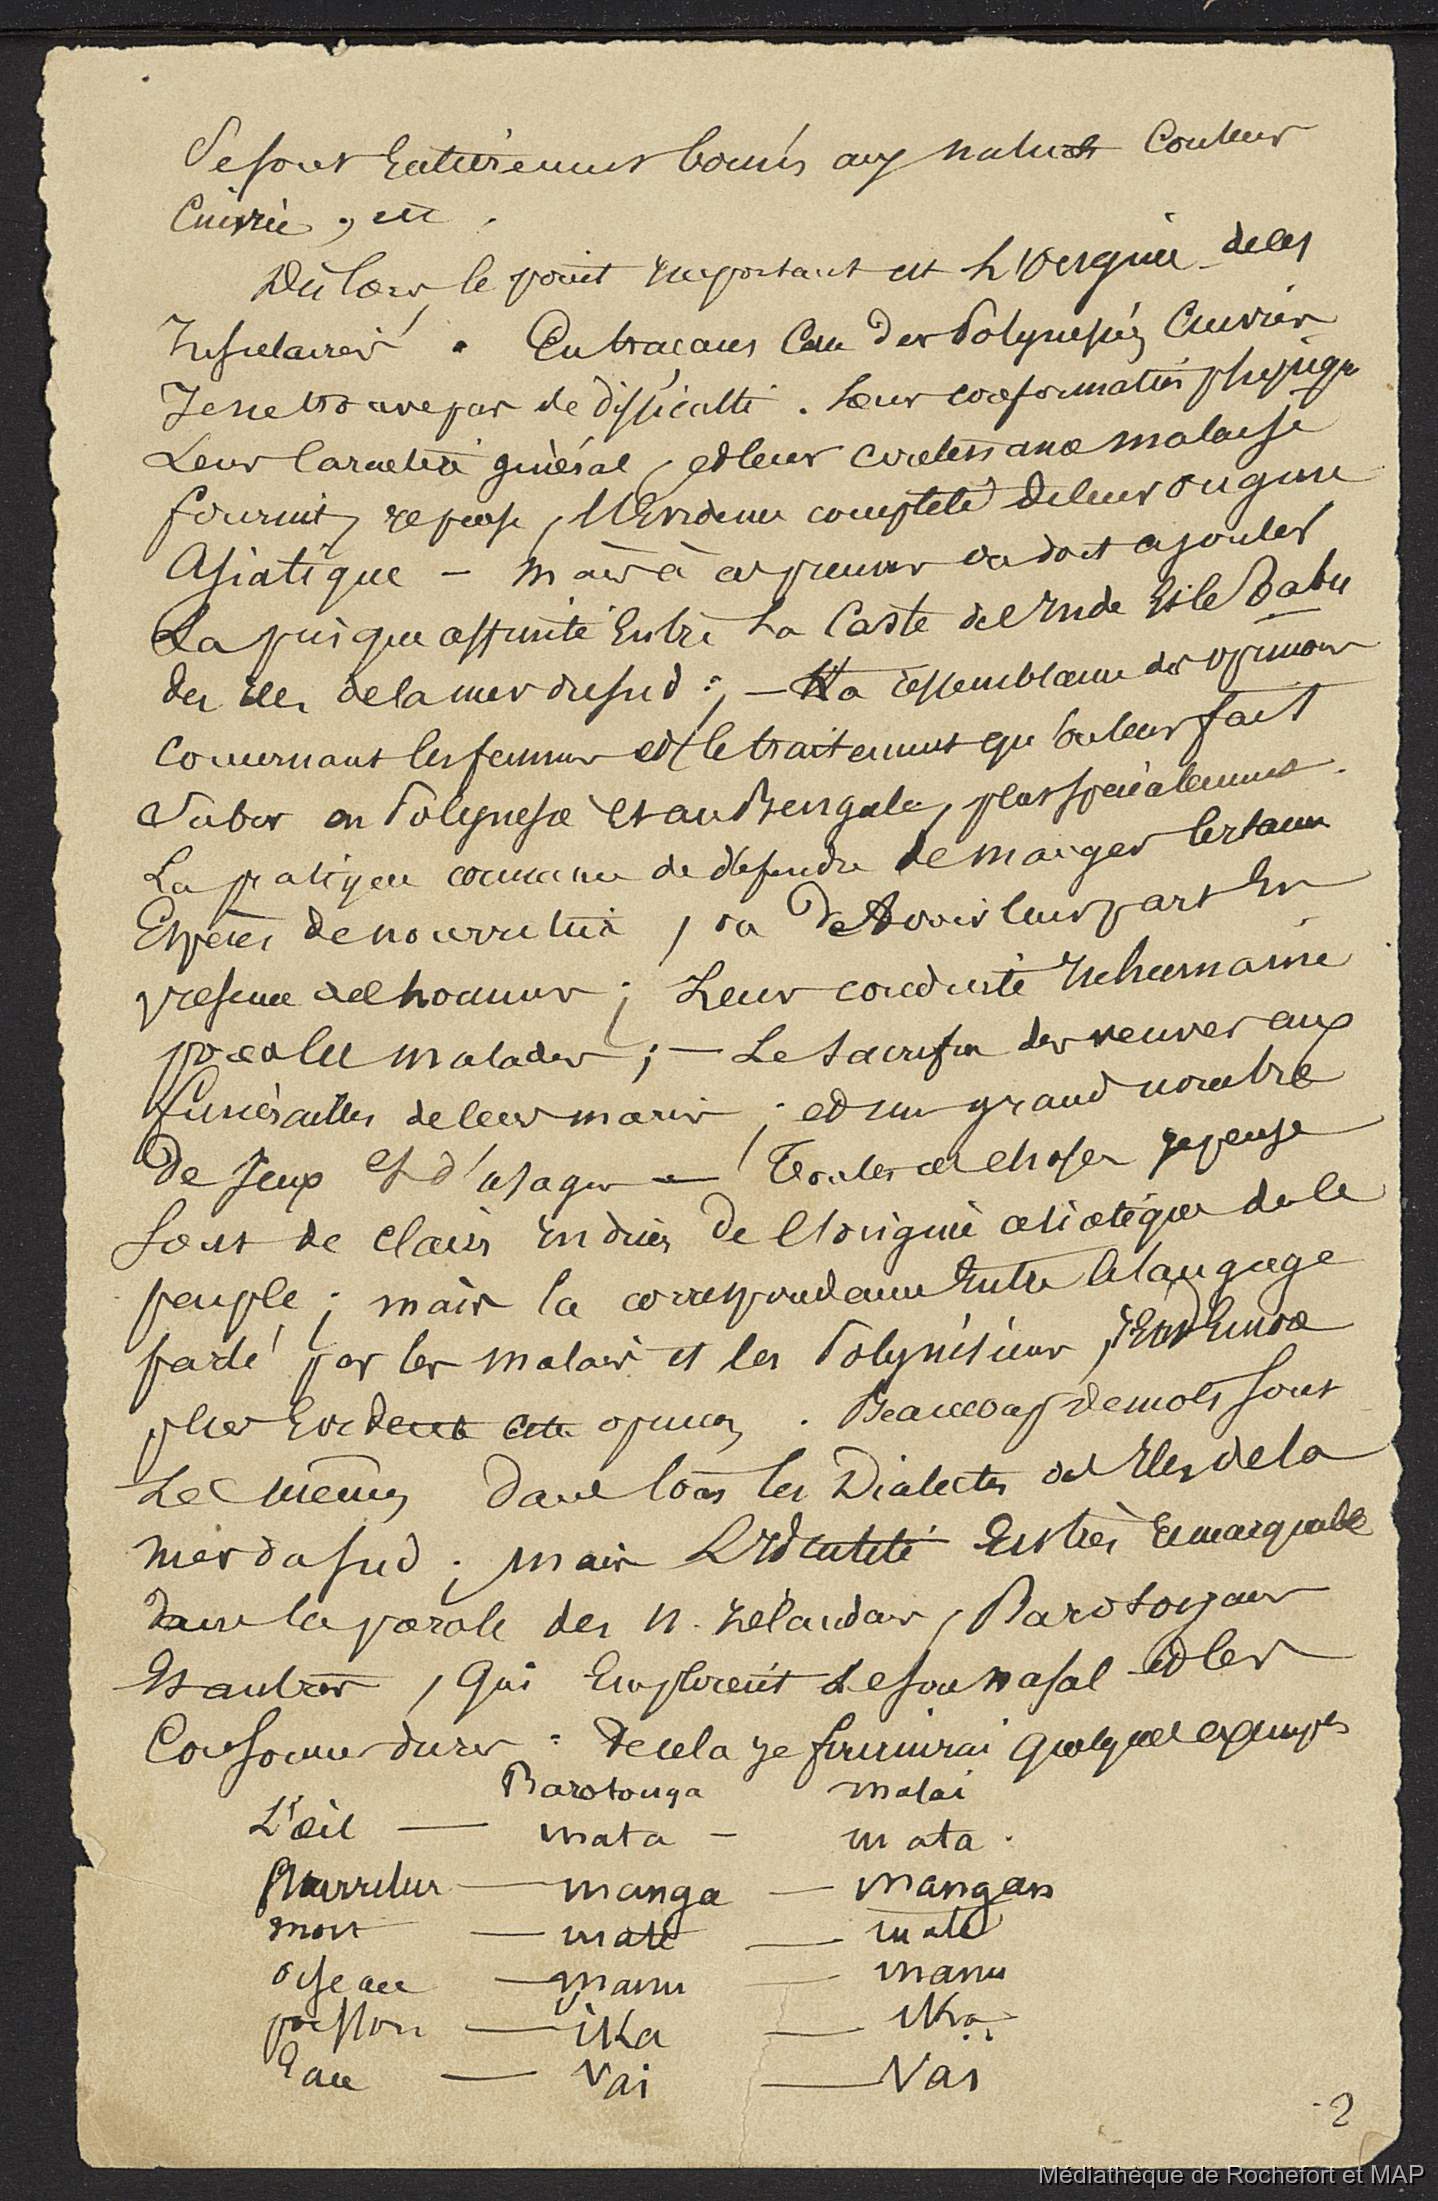 Se sont Entièrement bornés aux naturels Couleur
Cuivrée, etc.
Dès lors le point important est L'Origine de ces
Insulaires. En traçans Celle Des Polynésiens Cuivrés
Je ne trouve pas de difficulté. Leur conformation physique
Leur Caractère général, et leur contenance malaise
fournit, je pense, l'Evidence complète de leur origine
Asiatique — mais à ces preuves on doit ajouter
La puisque affinité Entre La Caste de l'Inde Et le Tabu
des Iles de la mer du sud; — La ressemblance des opinions
concernant les femmes et le traitement qu'on leur fait
Subir en Polynesie Et au Bengale, plus spécialement.
La pratique commune de défendre de manger Certaines
Espèces de nourriture, ou De Avoir leur part En
présence de l'homme; Leur conduite Inhumaine
pour les malades; — Le sacrifice des veuves aux
funérailles de leur maris; et un grand nombre
De Jeux Et d'usages — Toutes ces choses je pense
Sont de clairs Indices De l'origine asiatique de le
peuple; mais la correspondance Entre le langage
parlé par les malais et les Polynésiens, rend Encore
plus Evidente cette opinion. Beaucoup de mots sont
Le mêmes Dans tous les Dialectes des Iles de la
mer du sud; mais L'Identité Est très remarquable
Dans la parole des N. Zélandais, Rarotongans
Et autres, Qui Emploient Le son nasal et les
Consonnes dures: De cela je fournirai quelques exemples
Rarotonga malai
L'œil — mata — mata.
Nourriture — manga — mangan
mort — mate — mate
oiseau — manu — manu
poisson — ika — ika
Eau — Vai — Vai
2
Médiathèque de Rochefort et MAP